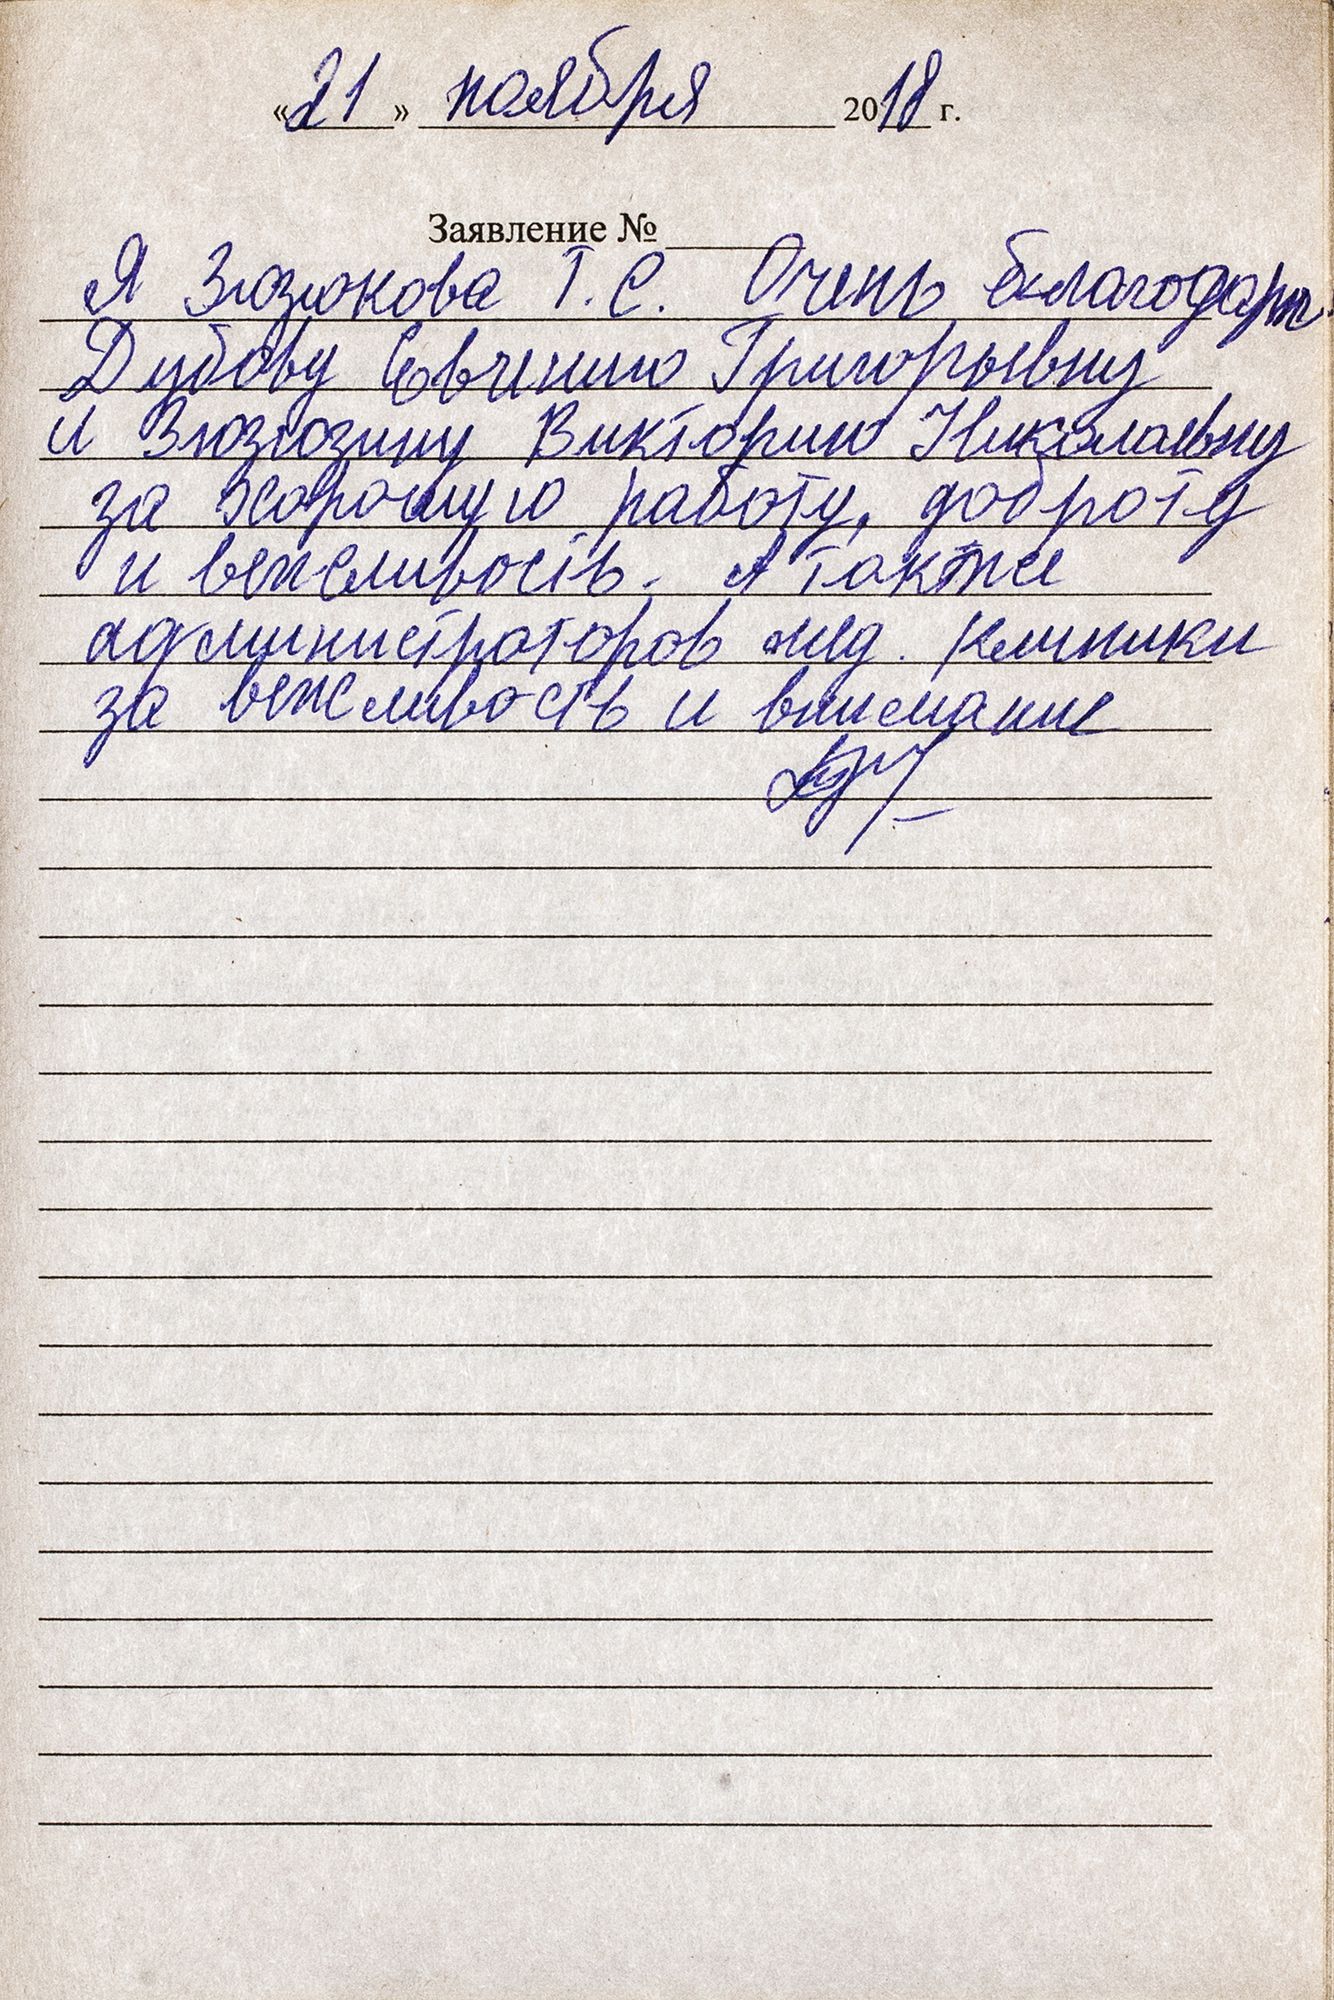 «21» ноября 2018 г.
Заявление №
Я Зюзюкова Т. С. Очень благодарю
Дубову Евгению Григорьевну
и Зюзюзину Викторию Николаевну
за хорошую работу, доброту
и вежливость. А также
администраторов мед. клиники
за вежливость и внимание